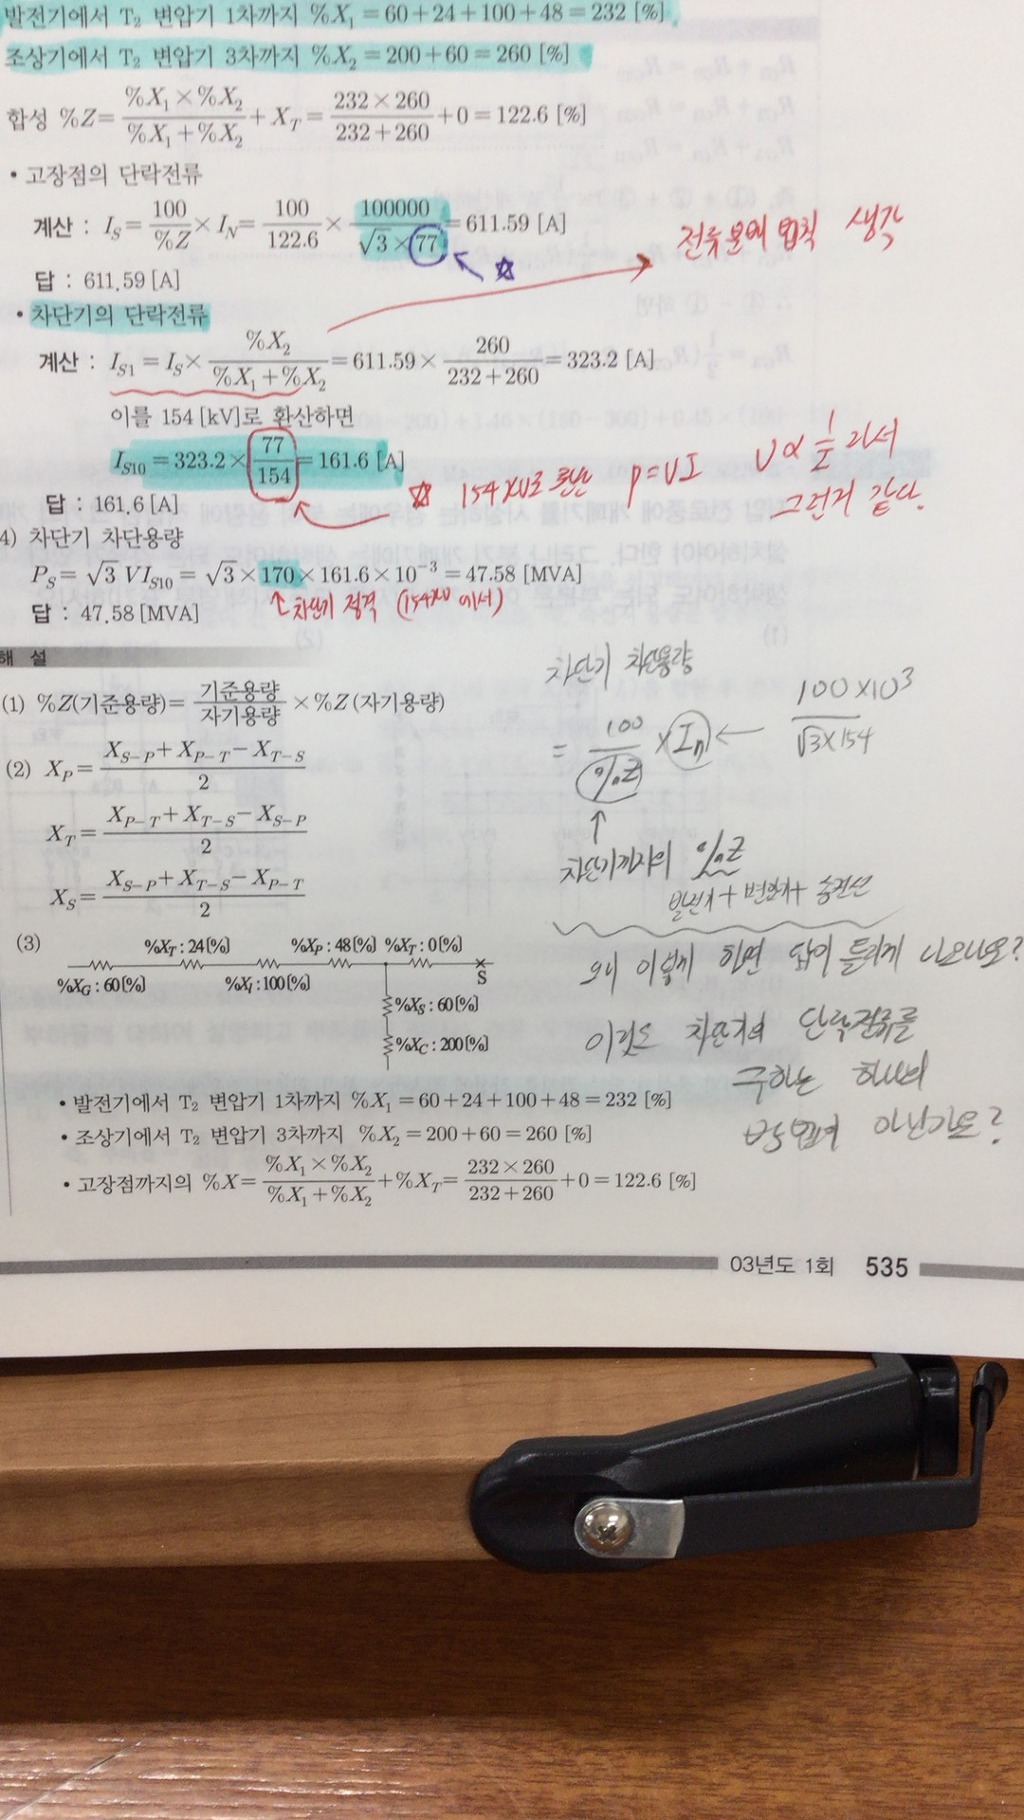 발전기에서 T₂ 변압기 1차까지 %X₁ = 60+24+100+48 = 232 [%]
조상기에서 T₂ 변압기 3차까지 %X₂ = 200+60 = 260 [%]
합성 %Z = (%X₁×%X₂)/(%X₁+%X₂) + X_T = (232×260)/(232+260) + 0 = 122.6 [%]
• 고장점의 단락전류
계산 : I_S = 100/%Z × I_N = 100/122.6 × 100000/(√3×77) = 611.59 [A]
전류분배 법칙 생각
답 : 611.59 [A]
• 차단기의 단락전류
계산 : I_S1 = I_S × %X₂/(%X₁+%X₂) = 611.59 × 260/(232+260) = 323.2 [A]
이를 154 [kV]로 환산하면
I_S10 = 323.2 × 77/154 = 161.6 [A]
☆ 154kV로 환산 P=VI V∝1/I 라서
그런거 같다.
답 : 161.6 [A]
4) 차단기 차단용량
P_S = √3 VI_S10 = √3×170×161.6×10⁻³ = 47.58 [MVA]
↑차단기 정격 (154kV 에서)
답 : 47.58 [MVA]
해 설
(1) %Z(기준용량) = 기준용량/자기용량 × %Z(자기용량)
(2) X_P = (X_S-P + X_P-T − X_T-S)/2
X_T = (X_P-T + X_T-S − X_S-P)/2
X_S = (X_S-P + X_T-S − X_P-T)/2
차단기 차단용량
= 100/%Z × In ← 100×10³/(√3×154)
↑
차단기까지의 %Z
발전기+변압기+송전선
왜 이렇게 하면 답이 틀리게 나오나요?
이것도 차단기의 단락전류를
구하는 하나의
방법이 아닌가요?
(3)
%X_T : 24[%] %X_P : 48[%] %X_T : 0[%]
%X_G : 60[%] %X_l : 100[%] S
%X_S : 60[%]
%X_C : 200[%]
• 발전기에서 T₂ 변압기 1차까지 %X₁ = 60+24+100+48 = 232 [%]
• 조상기에서 T₂ 변압기 3차까지 %X₂ = 200+60 = 260 [%]
• 고장점까지의 %X = (%X₁×%X₂)/(%X₁+%X₂) + %X_T = (232×260)/(232+260) + 0 = 122.6 [%]
03년도 1회 535